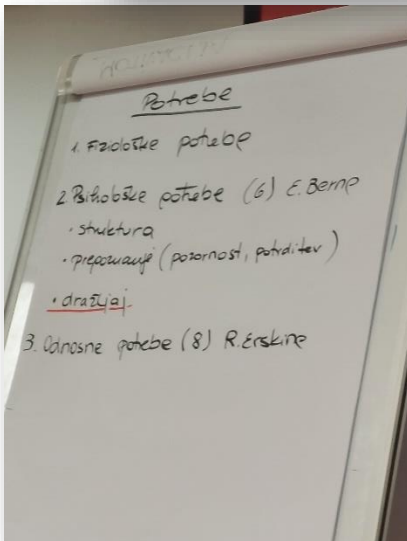 Potrebe
1. Fiziološke potrebe
2. Psihološke potrebe (6) E. Berne
• struktura
• prepoznanje (pozornost, potrditev)
• dražljaj
3. Odnosne potrebe (8) R. Erskine